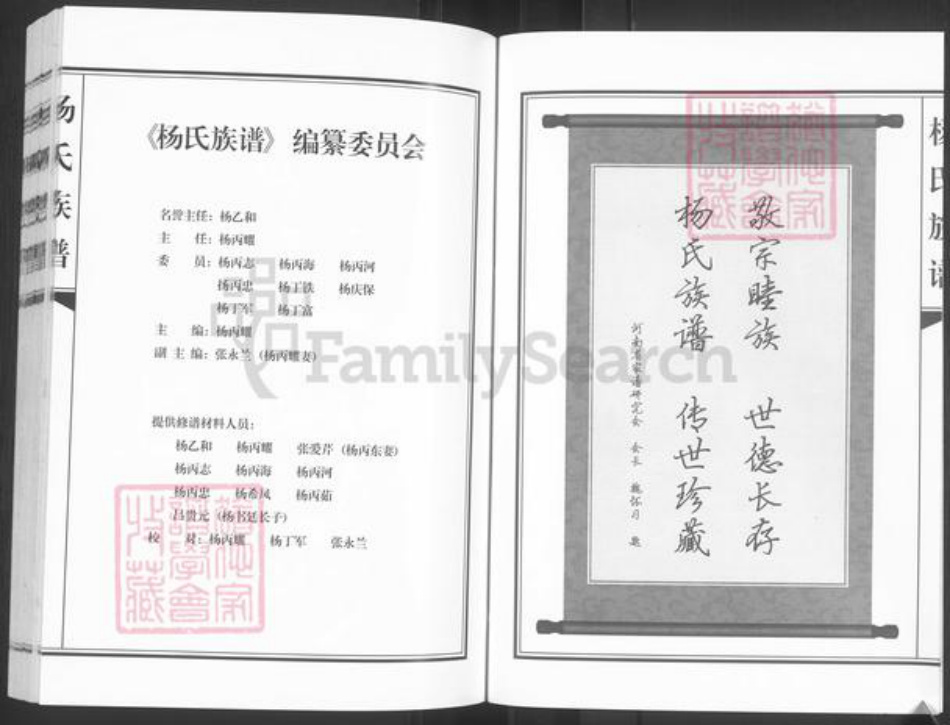 杨氏族谱
《杨氏族谱》 编纂委员会
名誉主任：杨乙和
主 任：杨丙耀
委 员：杨丙志 杨丙海 杨丙河
杨丙忠 杨丁铁 杨庆保
杨丁军 杨丁富
主 编：杨丙耀
副 主 编：张永兰（杨丙耀妻）
提供修谱材料人员：
杨乙和 杨丙耀 张爱芹（杨丙东妻）
杨丙志 杨丙海 杨丙河
杨丙忠 杨希凤 杨丙茹
吕贵元（杨书廷长子）
校 对：杨丙耀 杨丁军 张永兰
敬宗睦族 世德长存
杨氏族谱 传世珍藏
河南省家谱研究会 会长 魏怀习 题
杨氏族谱
FamilySearch